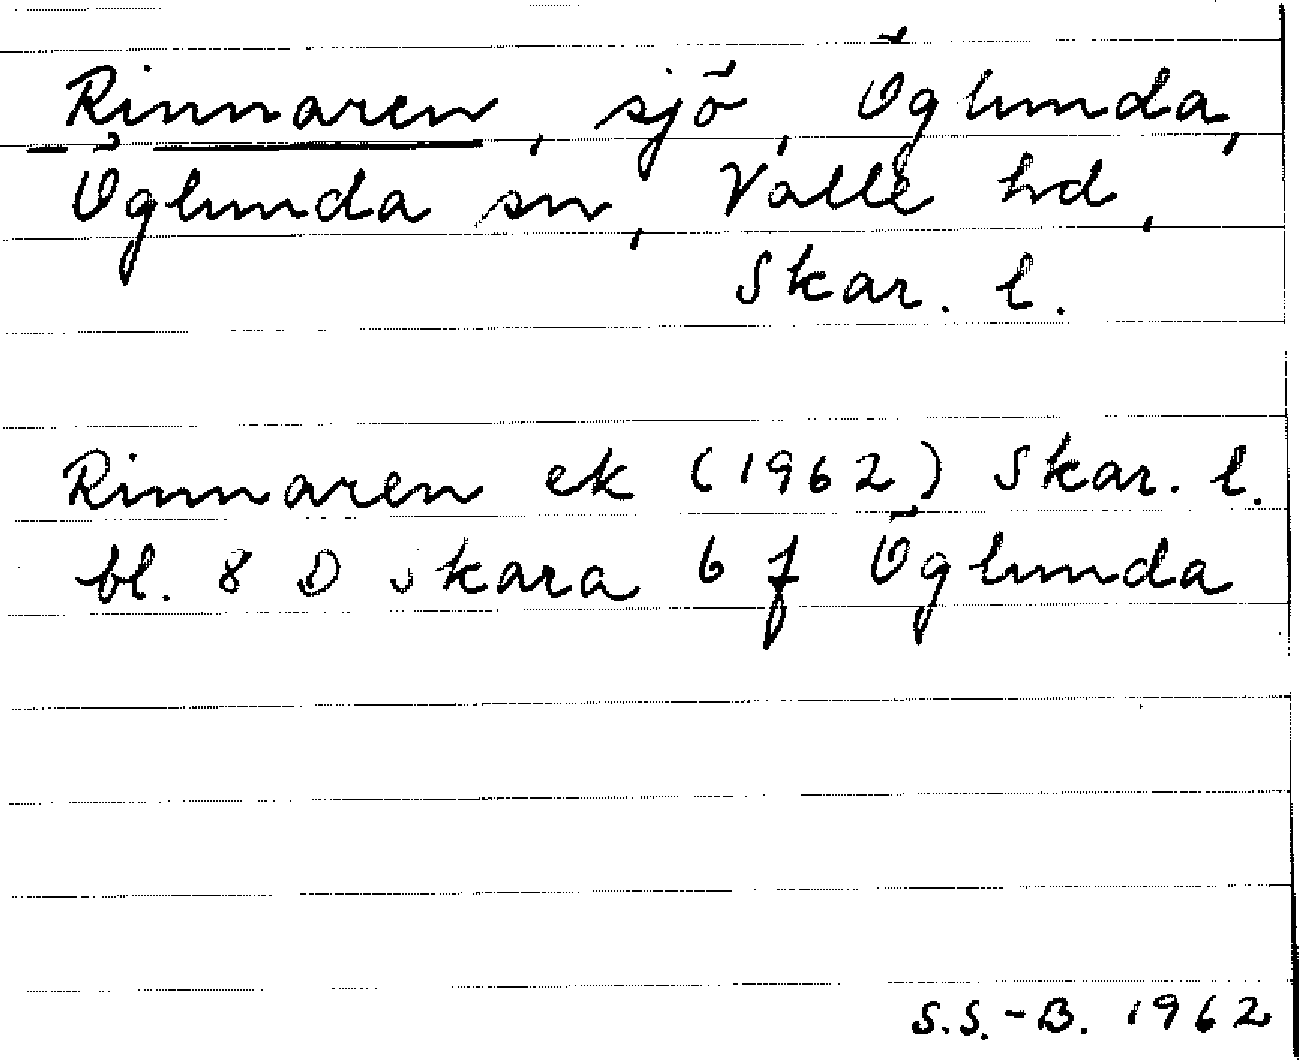 Rinnaren, sjö, Öglunda,
Öglunda sn, Valle hd,
Skar. l.
Rinnaren ek (1962) Skar. l.
bl. 8 D Skara 6 f Öglunda
S.S.-B. 1962